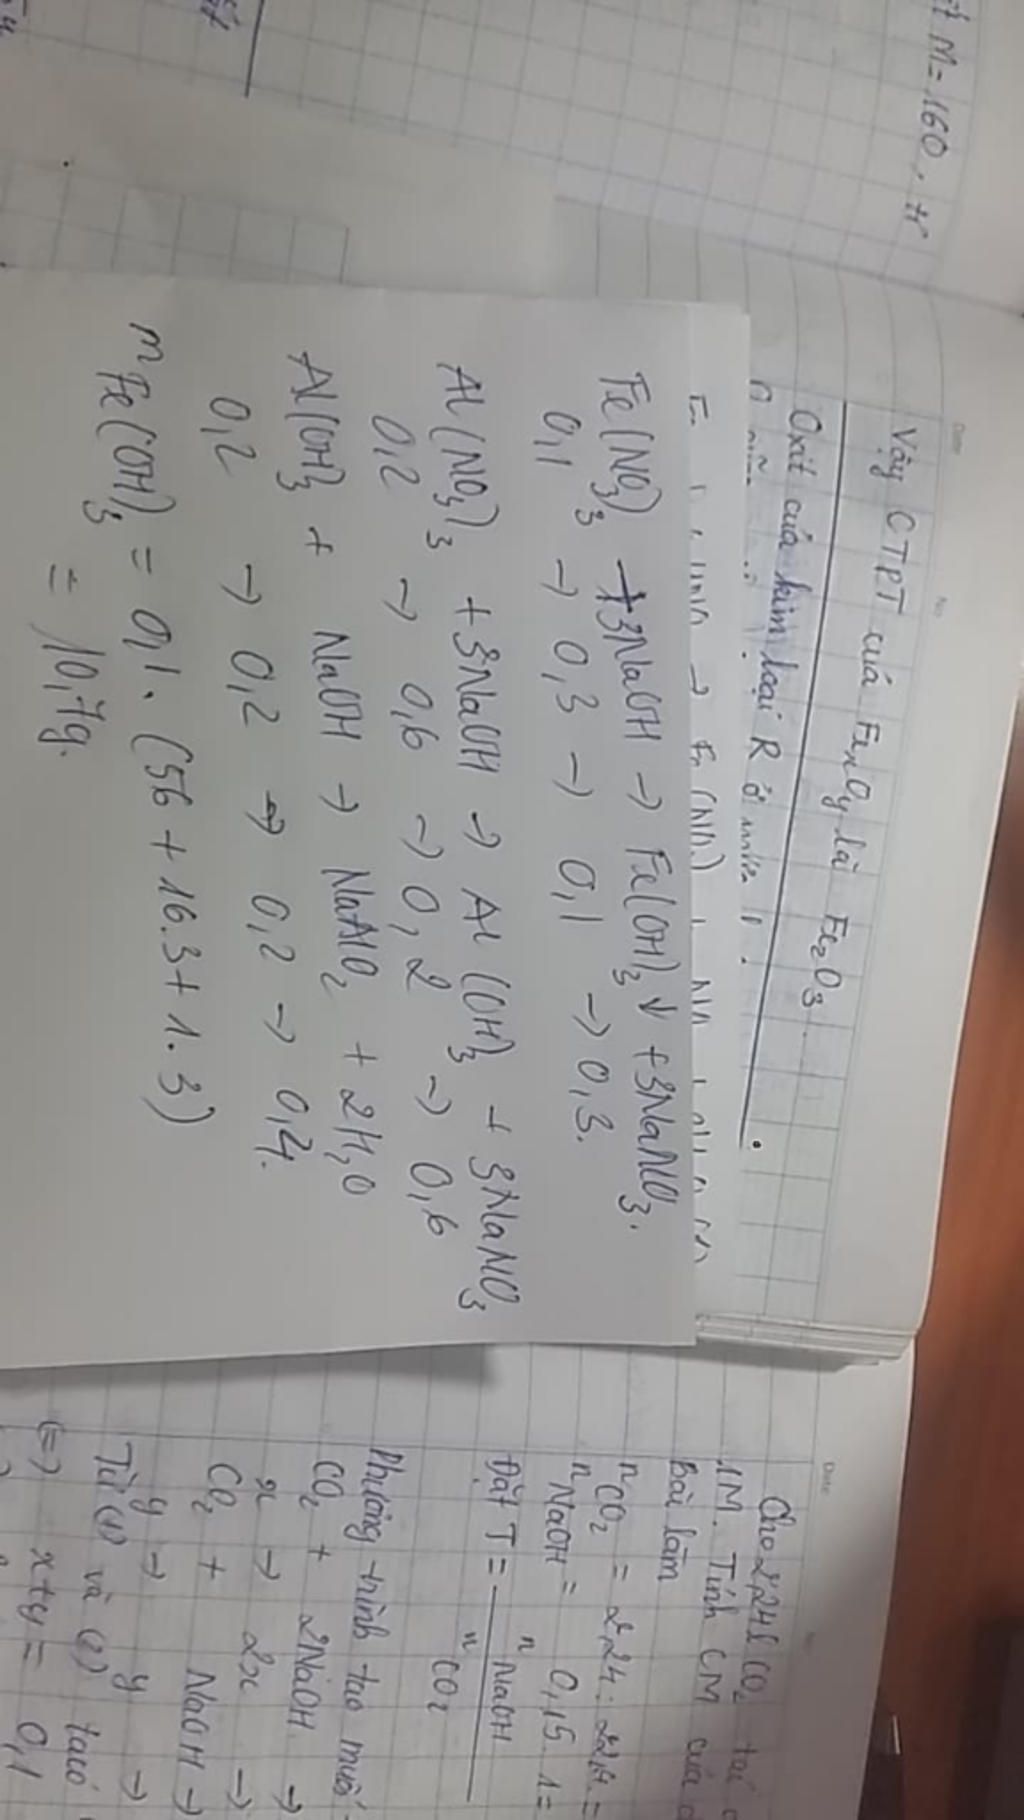 M = 160.
Vậy CTPT của FexOy là Fe2O3.
Oxit của kim loại R ở
Fe(NO3)3 + 3NaOH → Fe(OH)3↓ + 3NaNO3.
0,1 → 0,3 → 0,1 → 0,3.
Al(NO3)3 + 3NaOH → Al(OH)3 + 3NaNO3
0,2 → 0,6 → 0,2 → 0,6
Al(OH)3 + NaOH → NaAlO2 + 2H2O
0,2 → 0,2 → 0,2 → 0,4.
mFe(OH)3 = 0,1.(56 + 16.3 + 1.3)
= 10,7g.
Cho 2,24l CO2
1M. Tính CM của
Bài làm
nCO2 = 2,24 : 22,4 =
nNaOH = 0,15.1 =
Đặt T = nNaOH
nCO2
Phương trình tạo muối
CO2 + 2NaOH →
x → 2x →
CO2 + NaOH →
y → y →
Từ (1) và (2) ta có
(=) x+y = 0,1